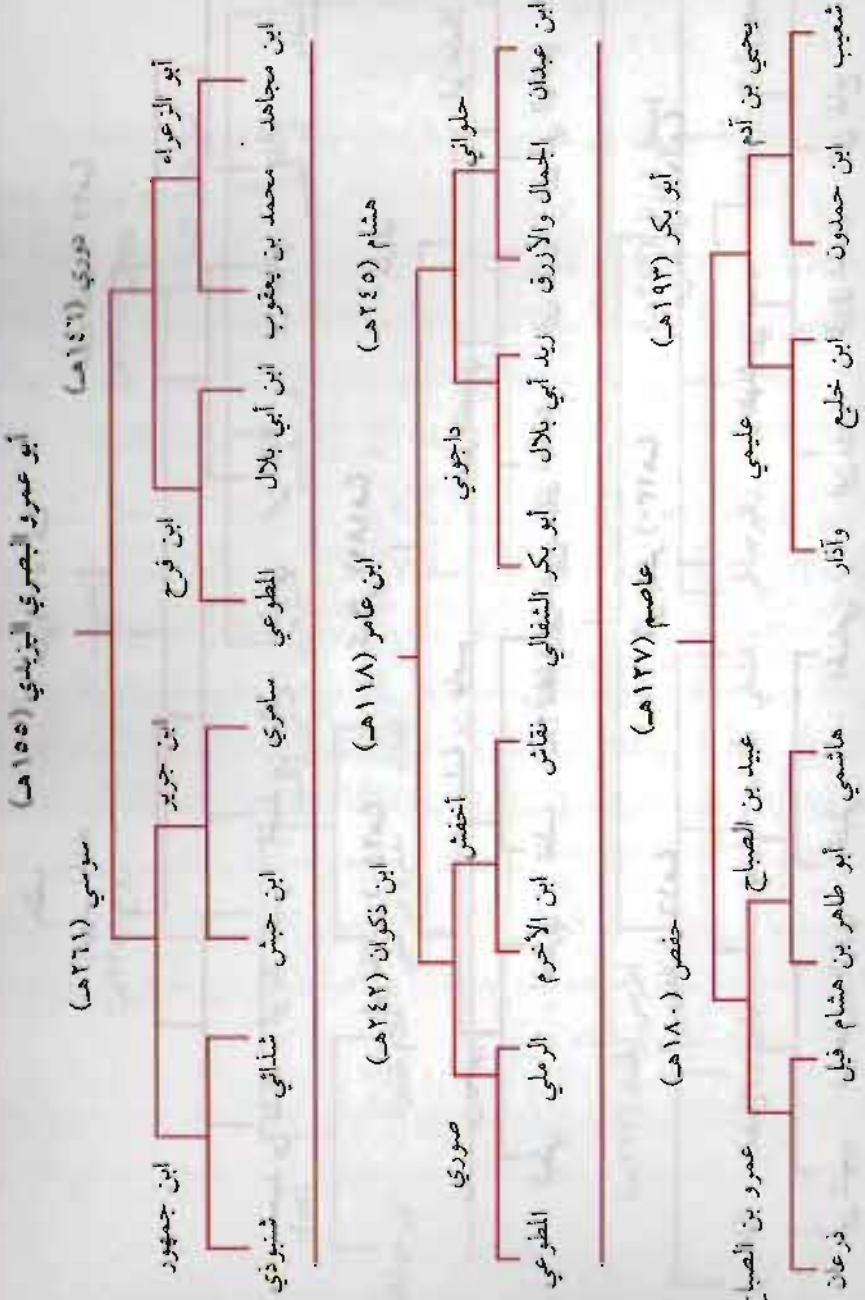 أبو عمرو البصري اليزيدي (١٥٥هـ)
دوري (١٤٦هـ) سوسي (٢٦١هـ)
أبو الزعراء ابن فرح ابن جرير ابن جمهور
ابن مجاهد محمد بن يعقوب ابن أبي بلال المطوعي سامري ابن حبش شذائي شنبوذي
ابن عامر (١١٨هـ)
هشام (٢٤٥هـ) ابن ذكوان (٢٤٢هـ)
حلواني داجوني أخفش صوري
ابن عبدان الجمال والأزرق زيد أبي بلال أبو بكر الشفالي نقاش ابن الأخرم الرملي المطوعي
عاصم (١٢٧هـ)
أبو بكر (١٩٣هـ) حفص (١٨٠هـ)
يحيى بن آدم عليمي عبيد بن الصباح عمرو بن الصباح
شعيب ابن حمدون ابن خليع وآذار هاشمي أبو طاهر بن هشام فيل ذرعان